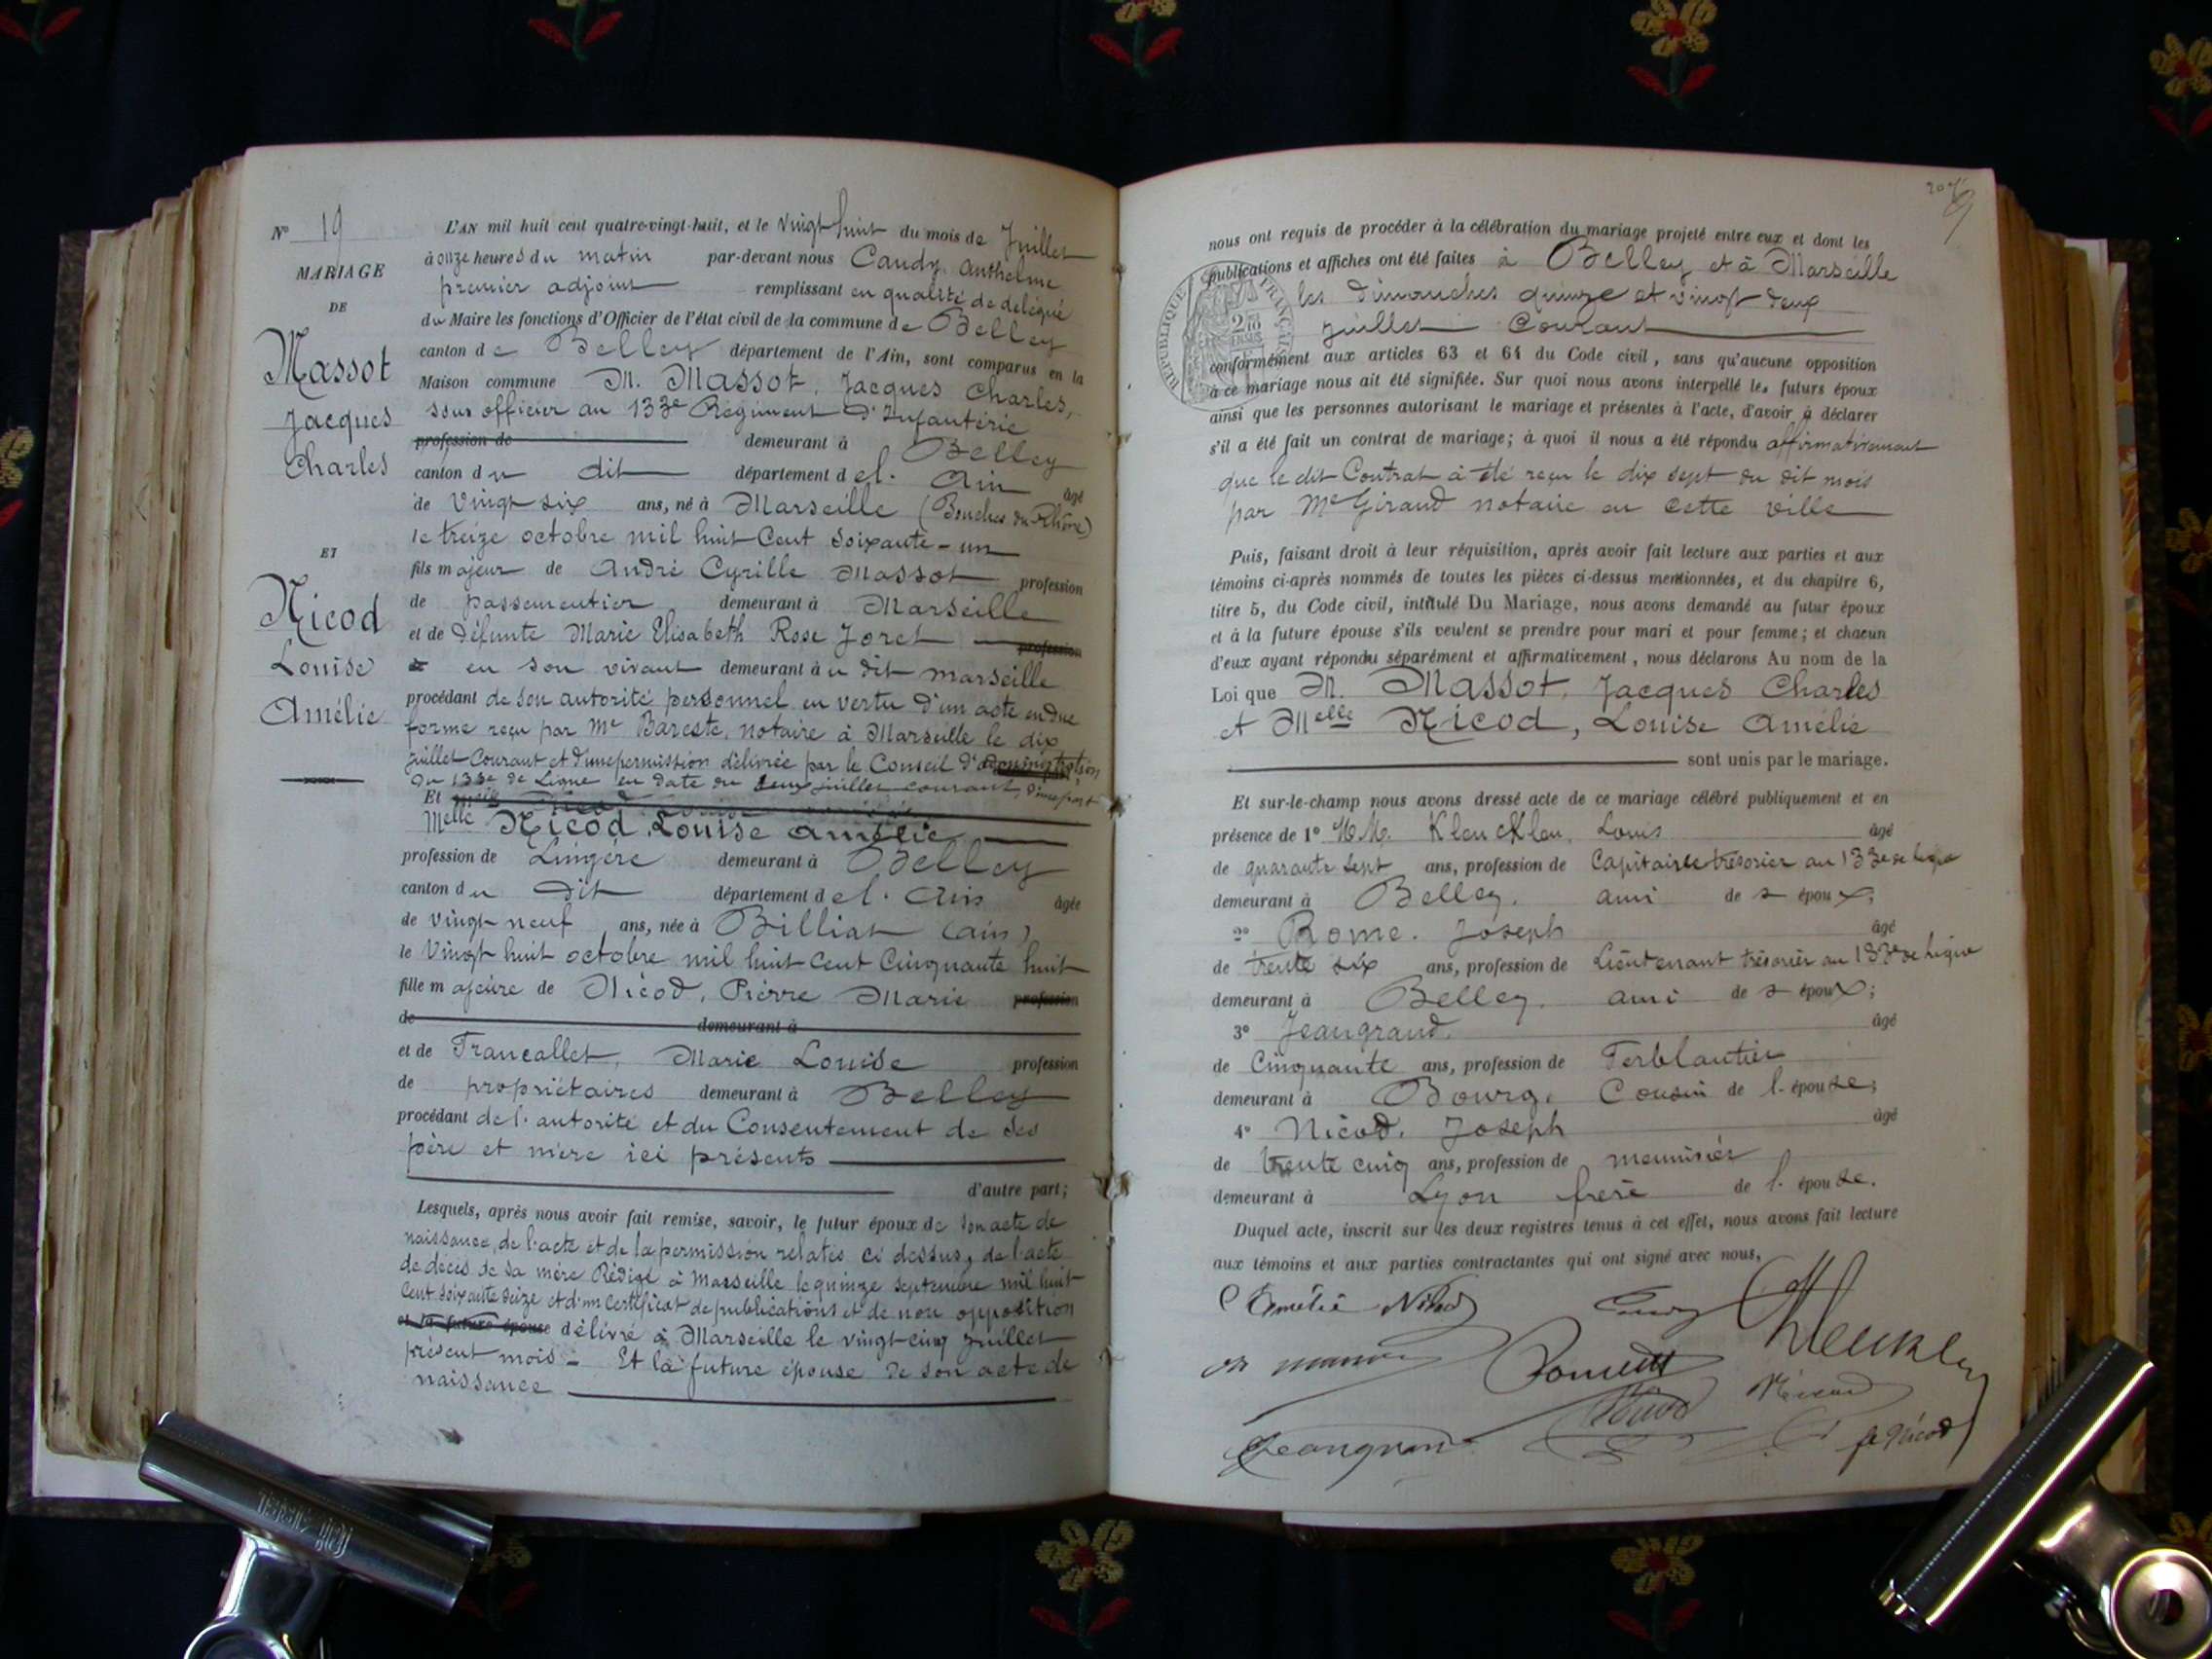 N° 19
MARIAGE
DE
Massot
Jacques
Charles
ET
Nicod
Louise
Amélie
L'AN mil huit cent quatre-vingt-huit, et le vingt huit du mois de Juillet
à onze heures du matin par-devant nous Caudy, Anthelme
premier adjoint remplissant en qualité de délégué
du Maire les fonctions d'Officier de l'état civil de la commune de Belley
canton de Belley département de l'Ain, sont comparus en la
Maison commune M. Massot, Jacques Charles,
sous officier au 133e Régiment d'Infanterie
profession de demeurant à Belley
canton du dit département de l'Ain âgé
de vingt six ans, né à Marseille (Bouches du Rhône)
le treize octobre mil huit cent soixante-un
fils majeur de André Cyrille Massot profession
de passementier demeurant à Marseille
et de défunte Marie Elisabeth Rose Joret profession
de en son vivant demeurant au dit marseille
procédant de son autorité personnel en vertu d'un acte en due
forme reçu par Me Bareste, notaire à Marseille le dix
juillet courant et d'une permission délivrée par le Conseil d'administration
du 133e de Ligne en date du deux juillet courant, d'une part
Et
Melle Nicod, Louise Amélie
profession de Lingère demeurant à Belley
canton du dit département de l'Ain âgée
de vingt neuf ans, née à Billiat (ain)
le vingt huit octobre mil huit cent cinquante huit
fille majeure de Nicod, Pierre Marie profession
de demeurant à
et de Trancallet, Marie Louise profession
de propriétaires demeurant à Belley
procédant de l'autorité et du Consentement de ses
père et mère ici présents
d'autre part;
Lesquels, après nous avoir fait remise, savoir, le futur époux de son acte de
naissance, de l'acte et de la permission relatés ci dessus, de l'acte
de décès de sa mère Rédigé à Marseille le quinze septembre mil huit
cent soixante seize et d'un certificat de publications et de non opposition
et la future épouse délivré à Marseille le vingt cinq juillet
présent mois - Et la future épouse de son acte de
naissance
207
nous ont requis de procéder à la célébration du mariage projeté entre eux et dont les
publications et affiches ont été faites à Belley et à Marseille
les dimanches quinze et vingt deux
juillet courant
conformément aux articles 63 et 64 du Code civil, sans qu'aucune opposition
à ce mariage nous ait été signifiée. Sur quoi nous avons interpellé les futurs époux
ainsi que les personnes autorisant le mariage et présentes à l'acte, d'avoir à déclarer
s'il a été fait un contrat de mariage; à quoi il nous a été répondu affirmativement
que le dit Contrat à été reçu le dix sept du dit mois
par Me Giraud notaire en cette ville
Puis, faisant droit à leur réquisition, après avoir fait lecture aux parties et aux
témoins ci-après nommés de toutes les pièces ci-dessus mentionnées, et du chapitre 6,
titre 5, du Code civil, intitulé Du Mariage, nous avons demandé au futur époux
et à la future épouse s'ils veulent se prendre pour mari et pour femme; et chacun
d'eux ayant répondu séparément et affirmativement, nous déclarons Au nom de la
Loi que M. Massot, Jacques Charles
et Melle Nicod, Louise Amélie
sont unis par le mariage.
Et sur-le-champ nous avons dressé acte de ce mariage célébré publiquement et en
présence de 1° M.M. Louis âgé
de quarante sept ans, profession de Capitaine trésorier au 133e de ligne
demeurant à Belley. ami de s époux;
2° Rome. Joseph âgé
de trente six ans, profession de Lieutenant trésorier au 133e de ligne
demeurant à Belley. ami de s époux;
3° Jeangrand. âgé
de Cinquante ans, profession de Ferblantier
demeurant à Bourg. Cousin de l'épouse;
4° Nicod. Joseph âgé
de trente cinq ans, profession de menuisier
demeurant à Lyon frère de l'épouse.
Duquel acte, inscrit sur les deux registres tenus à cet effet, nous avons fait lecture
aux témoins et aux parties contractantes qui ont signé avec nous,
Amélie Nicod
Nicod
Jeangrand
J Nicod